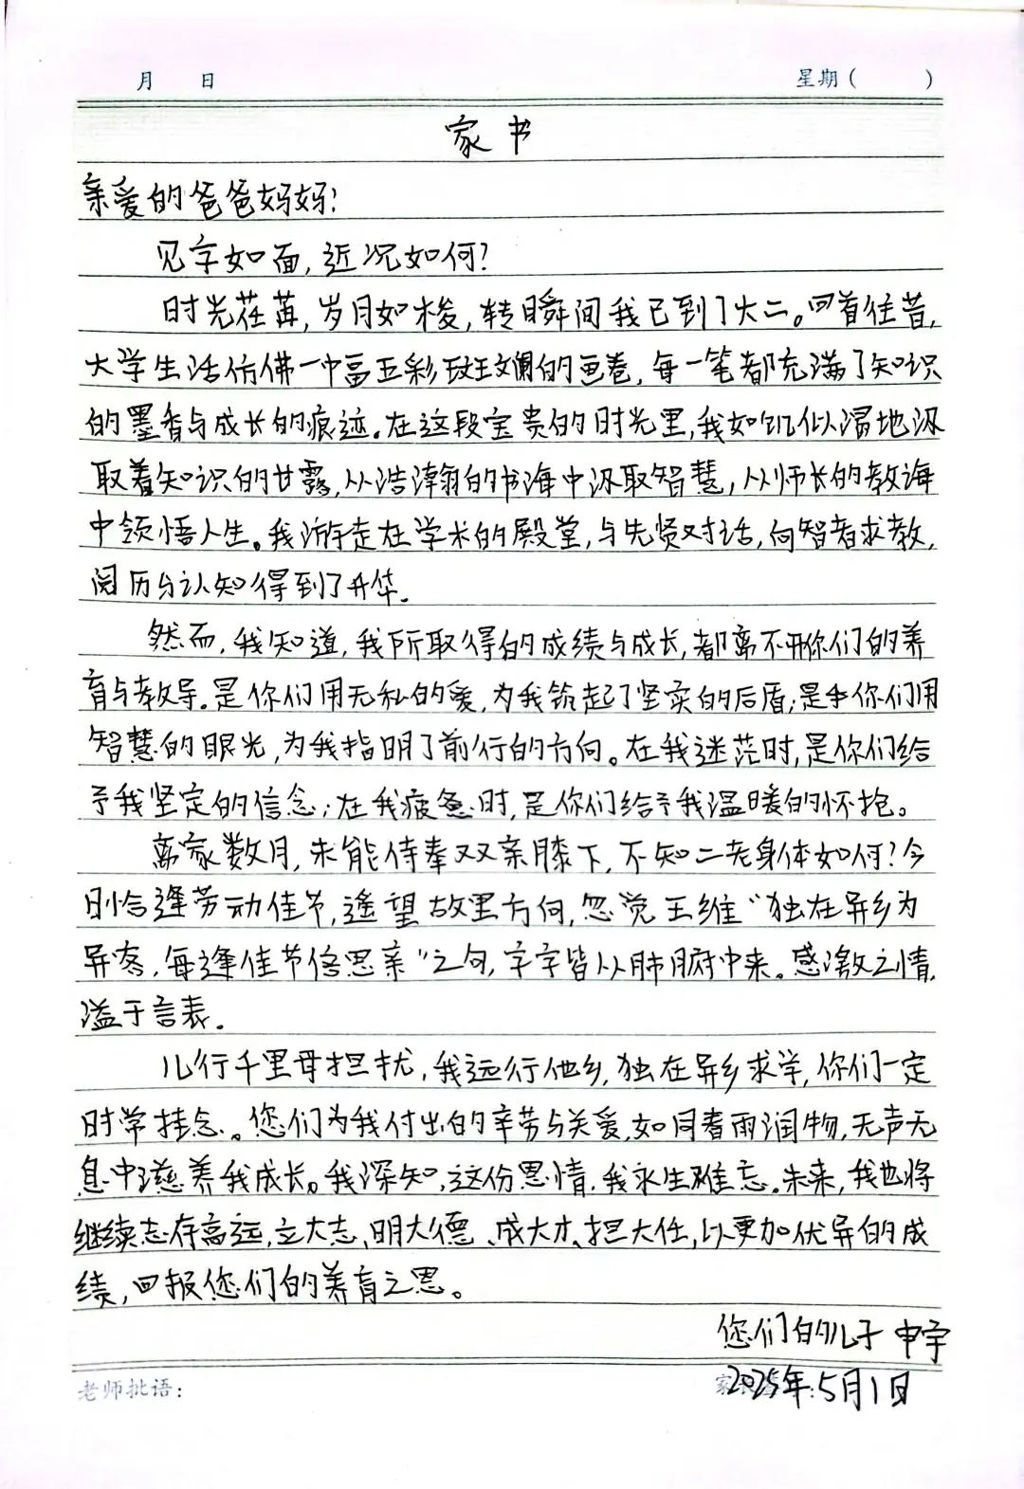 月 日 星期( )
家书
亲爱的爸爸妈妈!
见字如面,近况如何?
时光荏苒,岁月如梭,转瞬间我已到了大二。回首往昔,
大学生活仿佛一幅五彩斑斓的画卷,每一笔都充满了知识
的墨香与成长的痕迹。在这段宝贵的时光里,我如饥似渴地汲
取着知识的甘露,从浩瀚的书海中汲取智慧,从师长的教诲
中领悟人生。我游走在学术的殿堂,与先贤对话,向智者求教,
阅历与认知得到了升华.
然而,我知道,我所取得的成绩与成长,都离不开你们的养
育与教导.是你们用无私的爱,为我筑起了坚实的后盾;是你们用
智慧的眼光,为我指明了前行的方向。在我迷茫时,是你们给
予我坚定的信念;在我疲惫时,是你们给予我温暖的怀抱。
离家数月,未能侍奉双亲膝下,不知二老身体如何?今
日恰逢劳动佳节,遥望故里方向,忽觉王维“独在异乡为
异客,每逢佳节倍思亲”之句,字字皆从肺腑中来。感激之情,
溢于言表.
儿行千里母担扰,我远行他乡,独在异乡求学,你们一定
时常挂念。您们为我付出的辛劳与关爱,如同春雨润物,无声无
息中滋养我成长。我深知,这份恩情,我永生难忘.未来,我也将
继续志存高远,立大志、明大德、成大才、担大任,以更加优异的成
绩,回报您们的养育之恩。
您们的儿子 申宇
老师批语: 2025年5月1日